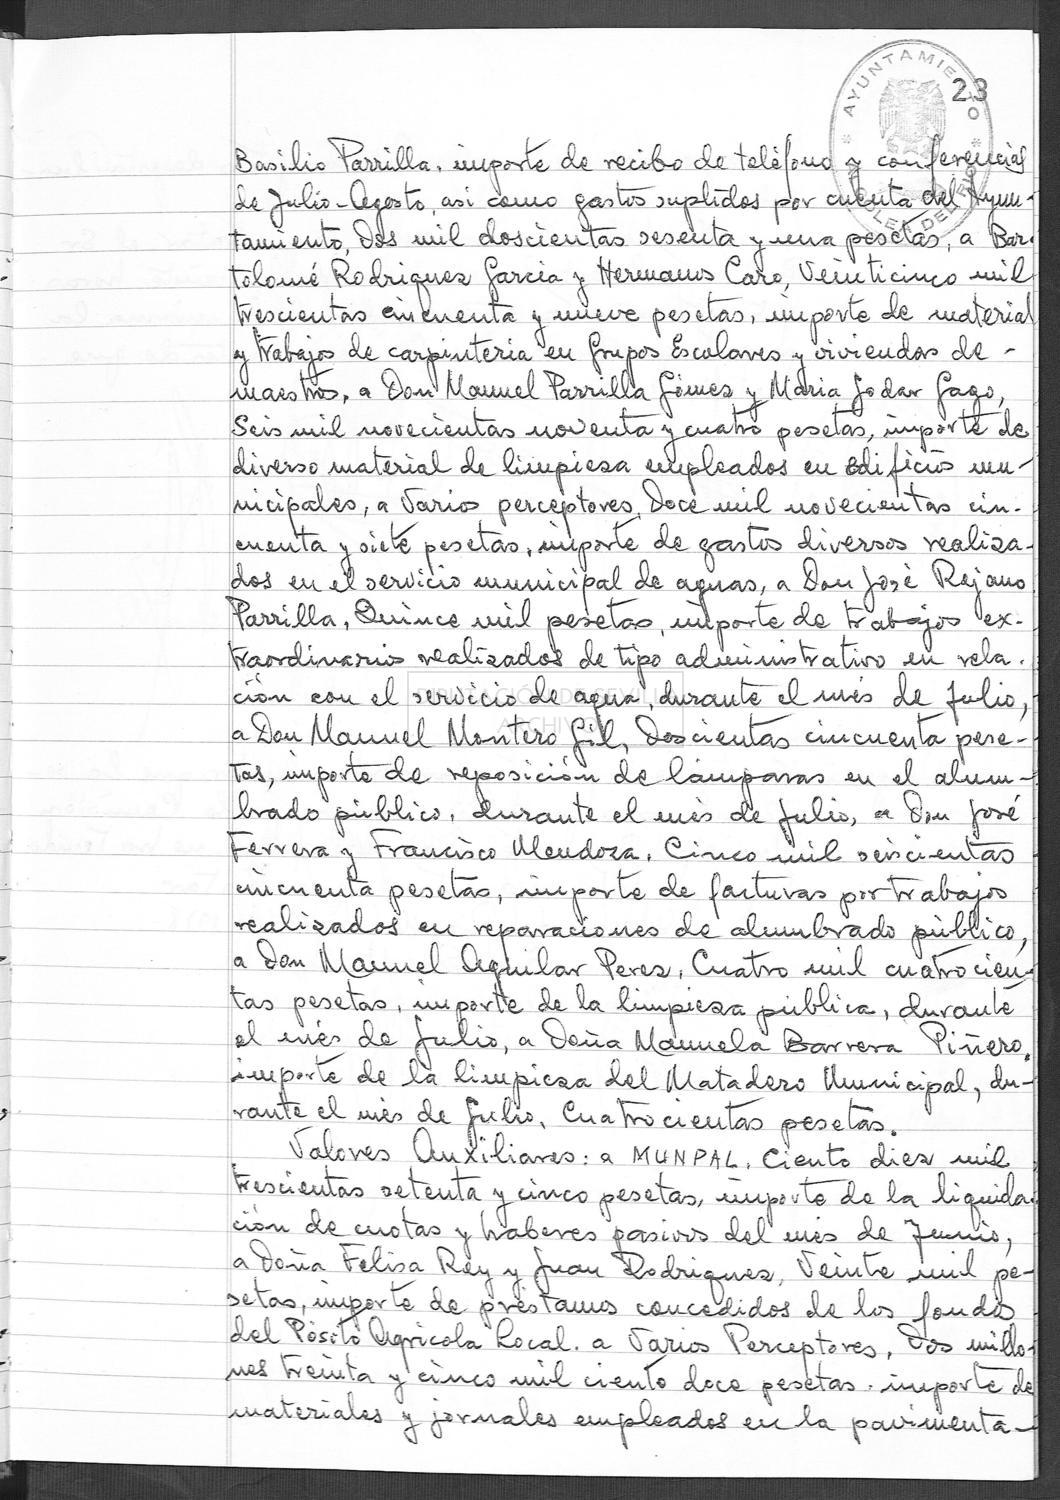 23
AYUNTAMIENTO
Basilio Parrilla, importe de recibo de teléfono y conferencias
de Julio-Agosto, asi como gastos suplidos por cuenta del Ayun-
tamiento, Dos mil doscientas sesenta y una pesetas, a Bar-
tolomé Rodriguez Garcia y Hermanos Caro, Veinticinco mil
trescientas cincuenta y nueve pesetas, importe de material
y trabajos de carpinteria en Grupos Escolares y viviendas de -
maestros, a Don Manuel Parrilla Gómez y Maria Jodar Gago,
Seis mil novecientas noventa y cuatro pesetas, importe de
diverso material de limpieza empleados en edificios mu-
nicipales, a Varios perceptores, Doce mil novecientas cin-
cuenta y siete pesetas, importe de gastos diversos realiza-
dos en el servicio municipal de aguas, a Don José Rejano
Parrilla, Quince mil pesetas, importe de trabajos ex-
traordinarios realizados de tipo administrativo en rela-
ción con el servicio de agua, durante el més de Julio,
DIPUTACIÓN DE SEVILLA
ARCHIVO
a Don Manuel Montero Gil, Doscientas cincuenta pese-
tas, importe de reposición de lámparas en el alum-
brado público, durante el més de Julio, a Don José
Ferrera y Francisco Mendoza, Cinco mil seiscientas
cincuenta pesetas, importe de facturas por trabajos
realizados en reparaciones de alumbrado público,
a Don Manuel Aguilar Perez, Cuatro mil cuatrocien-
tas pesetas, importe de la limpieza pública, durante
el més de Julio, a Doña Manuela Barrera Piñero,
importe de la limpieza del Matadero Municipal, du-
rante el més de Julio, Cuatrocientas pesetas.
Valores Auxiliares: a MUNPAL, Ciento diez mil
trescientas setenta y cinco pesetas, importe de la liquida-
ción de cuotas y haberes pasivos del més de Junio,
a Doña Felisa Rey y Juan Rodriguez, Veinte mil pe-
setas, importe de préstamos concedidos de los fondos
del Pósito Agricola Local. a Varios Perceptores, Dos millo-
nes treinta y cinco mil ciento doce pesetas, importe de
materiales y jornales empleados en la pavimenta-